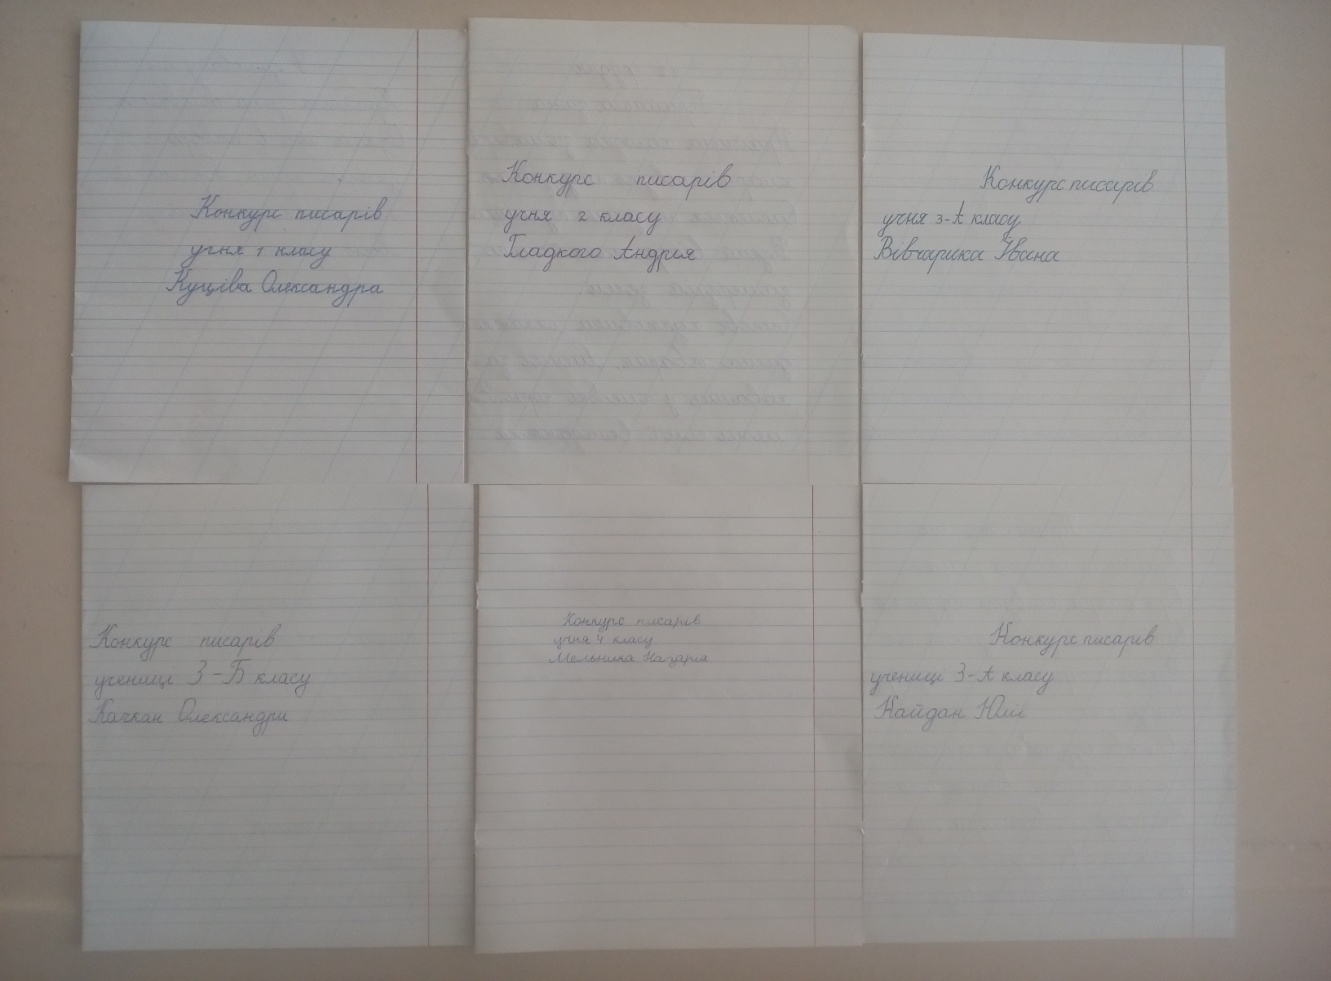 Конкурс писарів
учня 1 класу
Куціва Олександра
Конкурс писарів
учня 2 класу
Гладкого Андрія
Конкурс писарів
учня 3-А класу
Вівчарика Івана
Конкурс писарів
учениці 3-Б класу
Качкан Олександри
Конкурс писарів
учня 4 класу
Мельника Назарія
Конкурс писарів
учениці 3-А класу
Кайдан Юлії